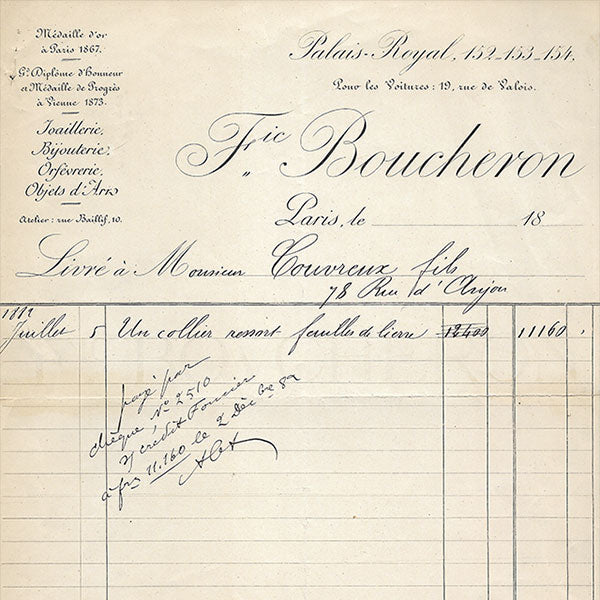 Médaille d'or
à Paris 1867.
Gd Diplôme d'Honneur
et Médaille de Progrès
à Vienne 1873.
Joaillerie,
Bijouterie,
Orfèvrerie,
Objets d'Art
Atelier: rue Baillif, 10.
Palais-Royal, 152_153_154.
Pour les Voitures: 19, rue de Valois.
Fic Boucheron
Paris, le 18
Livré à Monsieur Couvreux fils
78 Rue d'Anjou
1882
Juillet 5 Un collier ressort feuilles de lierre 12400 11160
payé par
chèque No 2510
s/ Crédit Foncier
à frs 11.160 le 2 Débre 82